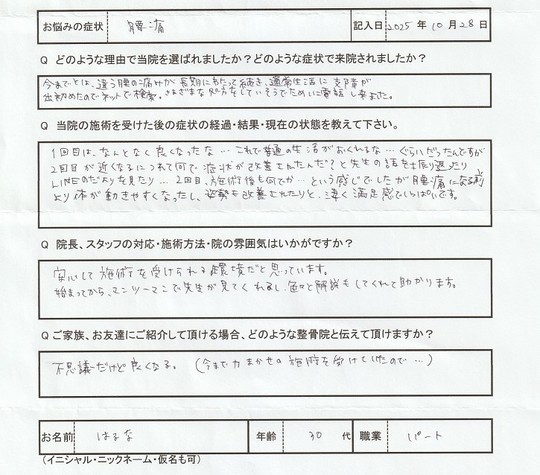 お悩みの症状 腰痛 記入日 2025年10月28日
Q どのような理由で当院を選ばれましたか？どのような症状で来院されましたか？
今までとは、違う腰の痛みが長期にわたって続き、通常生活に支障が
出始めたのでネットで検索。さまざまな処方をしていそうでためしに電話し来ました。
Q 当院の施術を受けた後の症状の経過・結果・現在の状態を教えて下さい。
1回目は、なんとなく良くなったな…これで普通の生活がおくれるな…ぐらいだったんですが
2回目が近くなるにつれて何で症状が改善されたんだ？と先生の話を振り返ったり
LINEのたよりを見たり…2回目、施術後も何でか…という感じでしたが腰痛になる前
より体が動きやすくなったし、姿勢も改善されたりと、凄く満足感でいっぱいです。
Q 院長、スタッフの対応・施術方法・院の雰囲気はいかがですか？
安心して施術を受けられる環境だと思っています。
始まってから、マンツーマンで先生が見てくれるし、色々と解説もしてくれて助かります。
Q ご家族、お友達にご紹介して頂ける場合、どのような整骨院と伝えて頂けますか？
不思議だけど良くなる。（今まで力まかせの施術を受けていたので…）
お名前 はるな 年齢 30代 職業 パート
（イニシャル・ニックネーム・仮名も可）